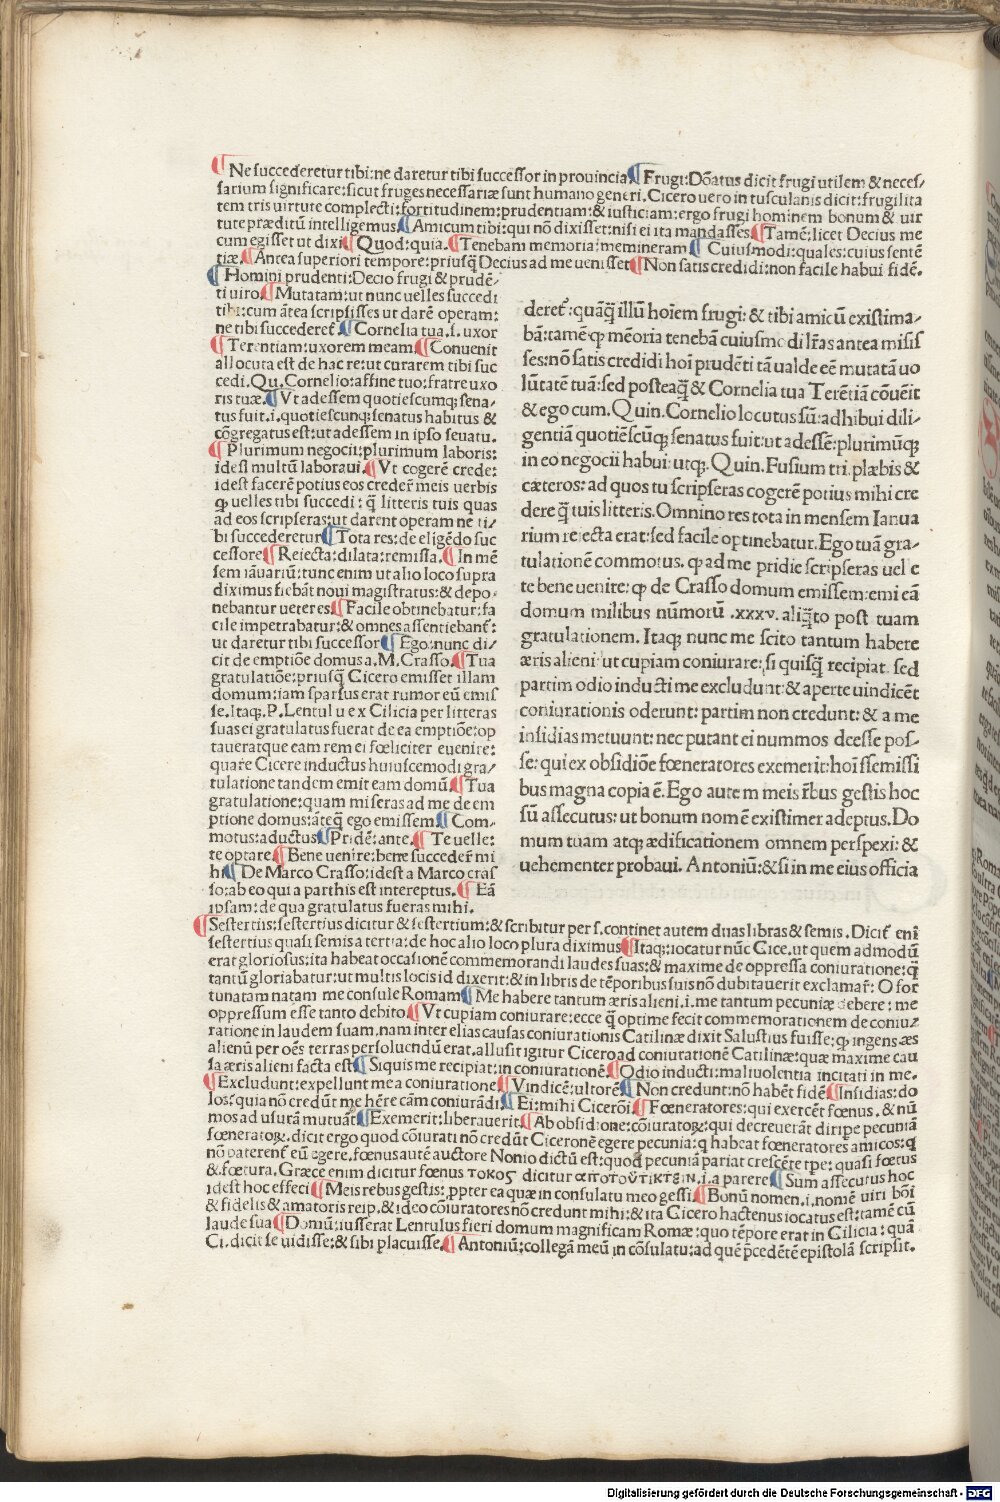 ¶ Ne succederetur tibi: ne daretur tibi successor in prouincia ¶ Frugi: Dõatus dicit frugi utilem & neces/
sarium significare: sicut fruges necessariæ sunt humano generi. Cicero uero in tusculanis dicit: frugilita
tem tris uirtute complecti: fortitudinem: prudentiam: & iusticiam: ergo frugi hominem bonum & uir
tute præditũ intelligemus ¶ Amicum tibi: qui nõ dixisset: nisi ei ita mandasses ¶ Tamẽ: licet Decius me
cum egisset ut dixi ¶ Quod: quia. ¶ Tenebam memoria: memineram ¶ Cuiusmodi: quales: cuius sentẽ
tiæ ¶ Antea superiori tempore: priusq̃ Decius ad me uenisset ¶ Non satis credidi: non facile habui fidẽ.
¶ Homini prudenti: Decio frugi & prudẽ/
ti uiro ¶ Mutatam: ut nunc uelles succedi
tibi: cum ãtea scripsisses ut darẽ operam:
ne tibi succederet̃ ¶ Cornelia tua .i. uxor
¶ Terentiam: uxorem meam ¶ Conuenit
allocuta est de hac re: ut curarem tibi suc
cedi. Qu. Cornelio: affine tuo: fratre uxo
ris tuæ. ¶ Vt adessem quotiescumq; sena/
tus fuit .i. quotiescunq; senatus habitus &
cõgregatus est: ut adessem in ipso seuatu.
¶ Plurimum negocii: plurimum laboris:
idest multũ laboraui ¶ Vt cogerẽ crede:
idest facerẽ potius eos crederẽ meis uerbis
ꝙ uelles tibi succedi: q̃ litteris tuis quas
ad eos scripseras: ut darent operam ne ti/
bi succederetur ¶ Tota res: de eligẽdo suc
cessore ¶ Reiecta: dilata: remissa. ¶ In mẽ
sem iãuariũ: tunc enim ut alio loco supra
diximus fiebãt noui magistratus: & depo/
nebantur ueteres ¶ Facile obtinebatur: fa
cile impetrabatur: & omnes assentiebant̃:
ut daretur tibi successor ¶ Ego: nunc di/
cit de emptiõe domus a. M. Crasso. ¶ Tua
gratulatiõe: priusq̃ Cicero emisset illam
domum: iam sparsus erat rumor eũ emis
se. Itaq;. P. Lentulu ex Cilicia per litteras
suas ei gratulatus fuerat de ea emptiõe: op
taueratque eam rem ei fœliciter euenire:
quare Cicere inductus huiuscemodi gra/
tulatione tandem emit eam domũ ¶ Tua
gratulatione: quam miseras ad me de em
ptione domus: ãteq̃ ego emissem ¶ Com/
motus: aductus ¶ Pridẽ: ante. ¶ Te uelle:
te optare ¶ Bene uenire: bene succederẽ mi
hi ¶ De Marco Crasso: idest a Marco cras
so: ab eo qui a parthis est intereptus. ¶ Eã
ipsam: de qua gratulatus fueras mihi.
deret̃: quãq̃ illũ hoĩem frugi: & tibi amicũ existima/
bã: tamẽ ꝙ mẽoria tenebã cuiusmodi lr̃as antea misis
ses: nõ satis credidi hoĩ prudẽti tã ualde eẽ mutatã uo
lũtatẽ tuã: sed posteaq̃ & Cornelia tua Terẽtiã cõuẽit
& ego cum. Quin. Cornelio locutus sũ: adhibui dili/
gentiã quotiẽscũq; senatus fuit: ut adessẽ: plurimũq;
in eo negocii habui: utq;. Quin. Fusium tri. plæbis &
cæteros: ad quos tu scripseras cogerẽ potius mihi cre
dere q̃ tuis litteris. Omnino res tota in mensem Ianua
rium reiecta erat: sed facile optinebatur. Ego tuã gra/
tulationẽ commotus. ꝙ ad me pridie scripseras uele
te bene uenire: ꝙ de Crasso domum emissem: emi eã
domum milibus nũmorũ .xxxv. aliq̃to post tuam
gratulationem. Itaq; nunc me scito tantum habere
æris alieni: ut cupiam coniurare: si quisq̃ recipiat. sed
partim odio inducti me excludunt: & aperte uindicẽt
coniurationis oderunt: partim non credunt: & a me
insidias metuunt: nec putant ei nummos deesse pos/
se: qui ex obsidiõe fœneratores exemerit: hoĩssemissi
bus magna copia ẽ. Ego autem meis rẽbus gestis hoc
sũ assecutus: ut bonum nomẽ existimer adeptus. Do
mum tuam atq; ædificationem omnem perspexi: &
uehementer probaui. Antoniũ: & si in me eius officia
¶ Sestertiis: sestertius dicitur & sestertium: & scribitur per s. continet autem duas libras & semis. Dicit̃ enĩ
sestertius quasi semis a tertia: de hoc alio loco plura diximus ¶ Itaq;: iocatur nũc Cice. ut quem admodũ
erat gloriosus: ita habeat occasionẽ commemorandi laudes suas: & maxime de oppressa coniuratione: q̃
tantũ gloriabatur: ut multis locis id dixerit: & in libris de tẽporibus suis nõ dubitauerit exclamar̃: O for
tunatam natam me consule Romam ¶ Me habere tantum æris alieni .i. me tantum pecuniæ debere: me
oppressum esse tanto debito ¶ Vt cupiam coniurare: ecce q̃ optime fecit commemorationem de coniu/
ratione in laudem suam. nam inter elias causas coniurationis Catilinæ dixit Salustius fuisse: ꝙ ingens æs
alienũ per oẽs terras persoluendũ erat. allusit igitur Cicero ad coniurationẽ Catilinæ: quæ maxime cau
sa æris alieni facta est ¶ Si quis me recipiat: in coniurationẽ ¶ Odio inducti: maliuolentia incitati in me.
¶ Excludunt: expellunt me a coniuratione ¶ Vindicẽ: ultorẽ ¶ Non credunt: nõ habẽt fidẽ ¶ Insidias: do
los: quia nõ credũt me hẽre cãm coniurãdi ¶ Ei: mihi Cicerõi ¶ Fœneratores: qui exercẽt fœnus. & nũ
mos ad usurã mutuãt ¶ Exemerit: liberauerit ¶ Ab obsidione: cõiuratoꝝ: qui decreuerãt diripe pecuniã
fœneratoꝝ. dicit ergo quod cõiurati nõ credũt Ciceronẽ egere pecunia: q habeat fœneratores amicos: q
nõ paterent̃ eũ egere. fœnus autẽ auctore Nonio dictũ est: quod pecuniã pariat crescẽte tp̃e: quasi fœtus
& fœtura. Græce enim dicitur fœnus τοκος dicitur αποτουτικτειν .i. a parere ¶ Sum assecutus hoc
idest hoc effeci ¶ Meis rebus gestis: ꝓpter ea quæ in consulatu meo gessi ¶ Bonũ nomen .i. nomẽ uiri bõĩ
& fidelis & amatoris reip. & ideo cõiuratores nõ credunt mihi: & ita Cicero hactenus iocatus est: tamẽ cũ
laude sua ¶ Domũ: iusserat Lentulus fieri domum magnificam Romæ: quo tẽpore erat in Cilicia: quã
Ci. dicit se uidisse: & sibi placuisse. ¶ Antoniũ: collegã meũ in cõsulatu: ad quẽ p̃cedẽtẽ epistolã scripsit.
Digitalisierung gefördert durch die Deutsche Forschungsgemeinschaft - DFG